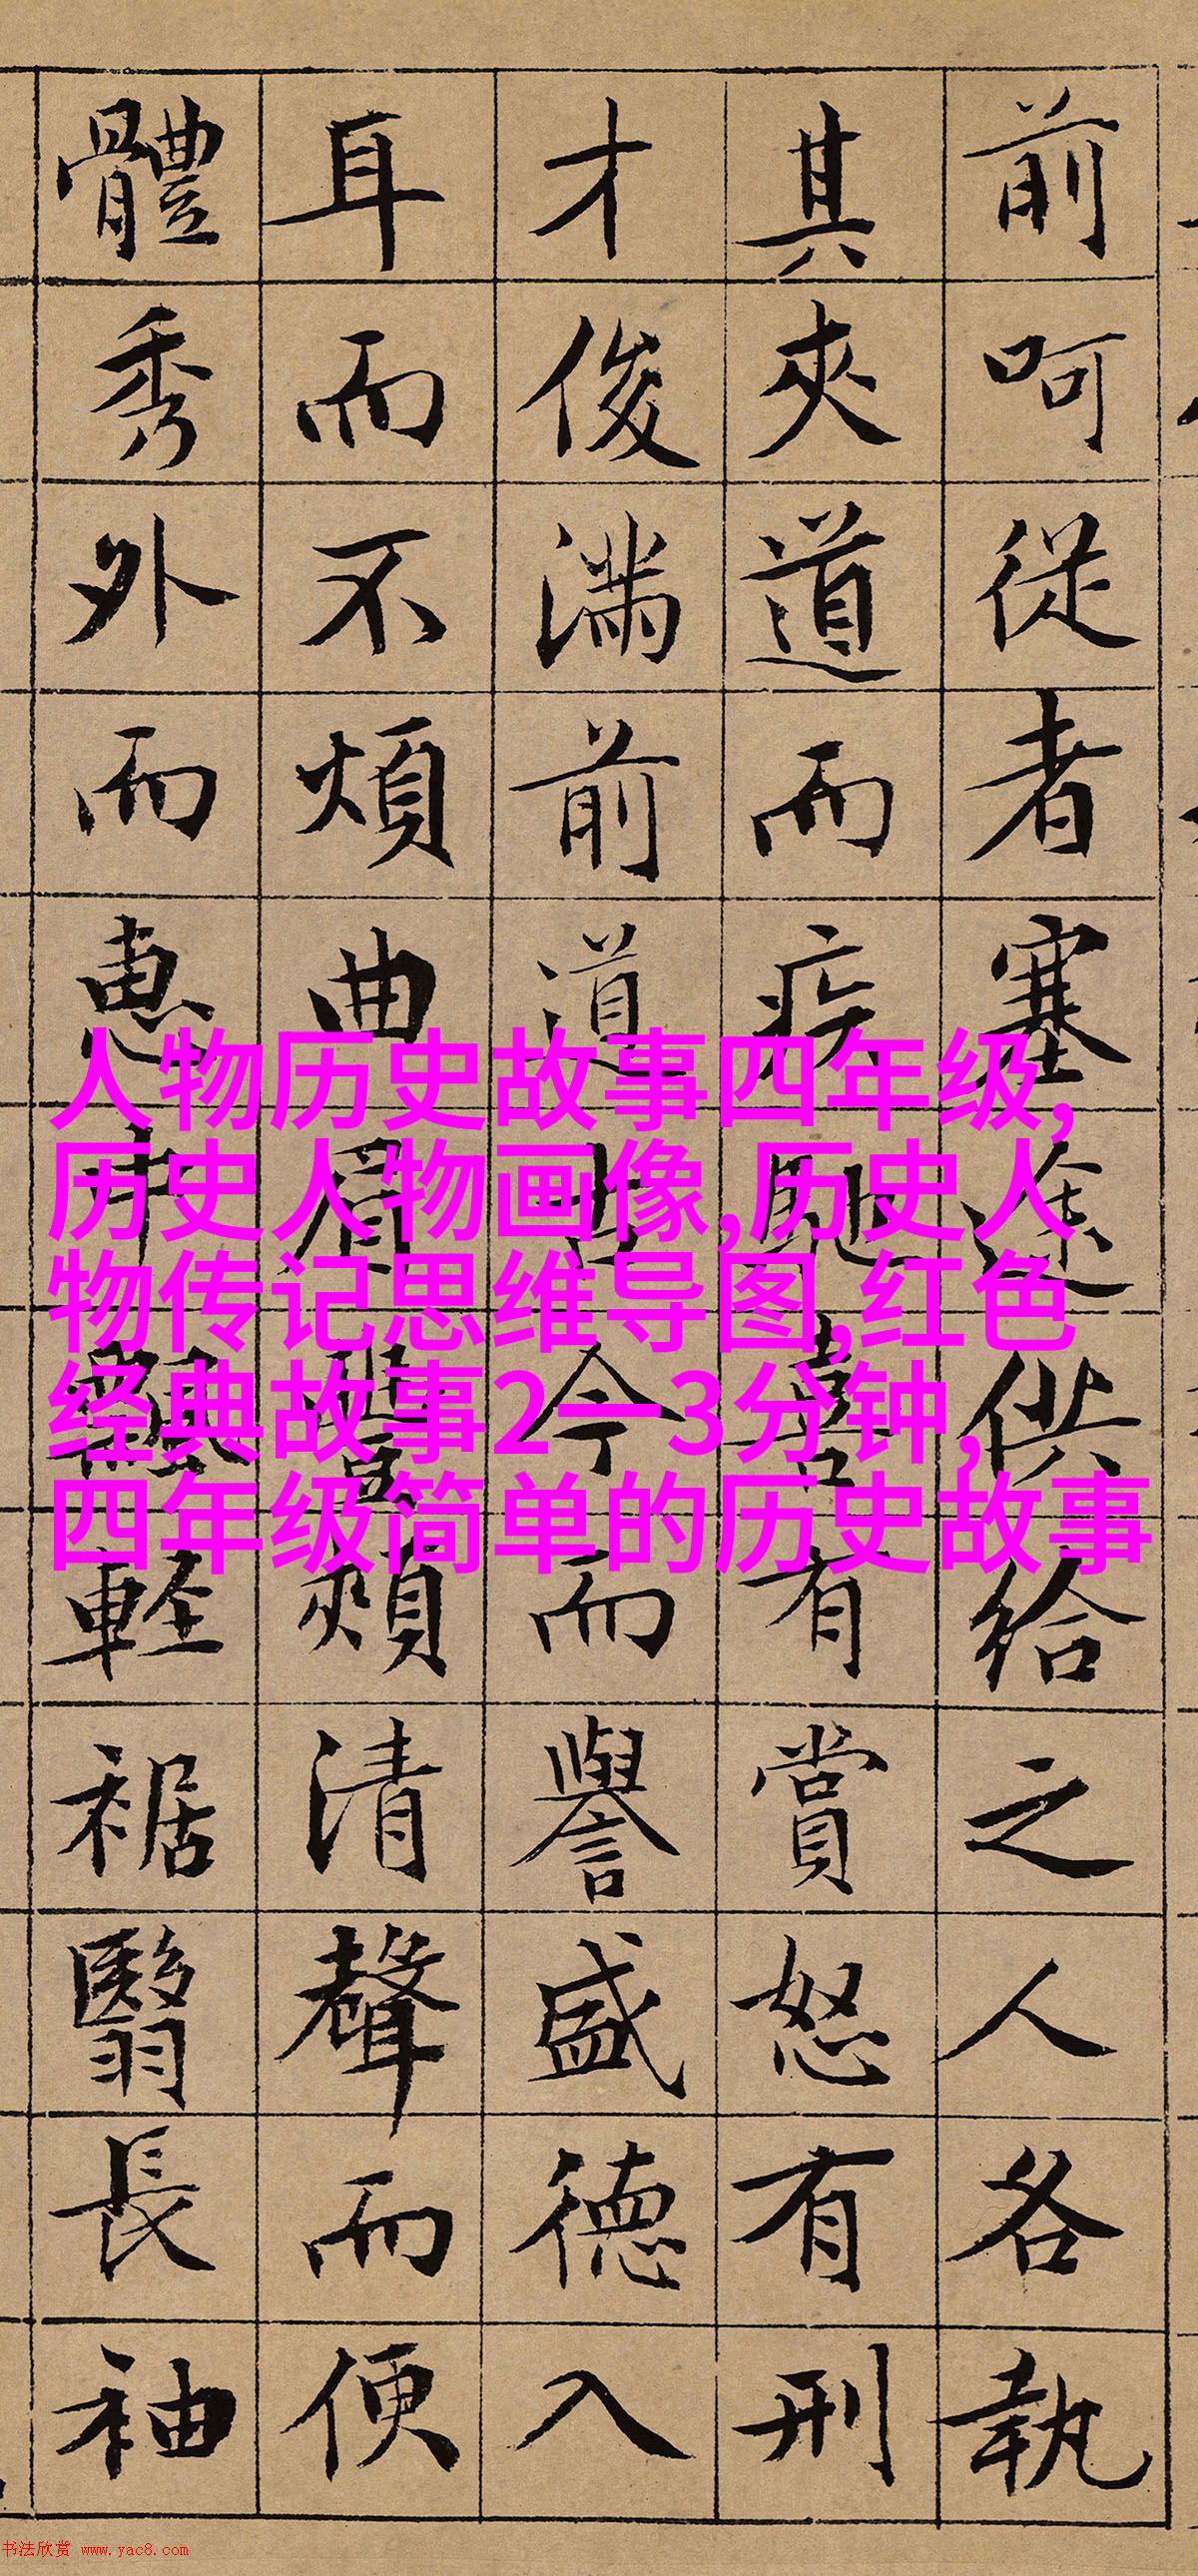 前呵從者塞途供給之人各執
其夾道而疾馳喜有賞怒有刑
才俊滿前道古今而譽盛德入
耳而不煩曲眉豐頰清聲而便
體秀外而惠中飄輕裾翳長袖
人物历史故事四年级,
历史人物画像,历史人
物传记思维导图,红色
经典故事2一3分钟,
四年级简单的历史故事
书法欣赏 www.yac8.com